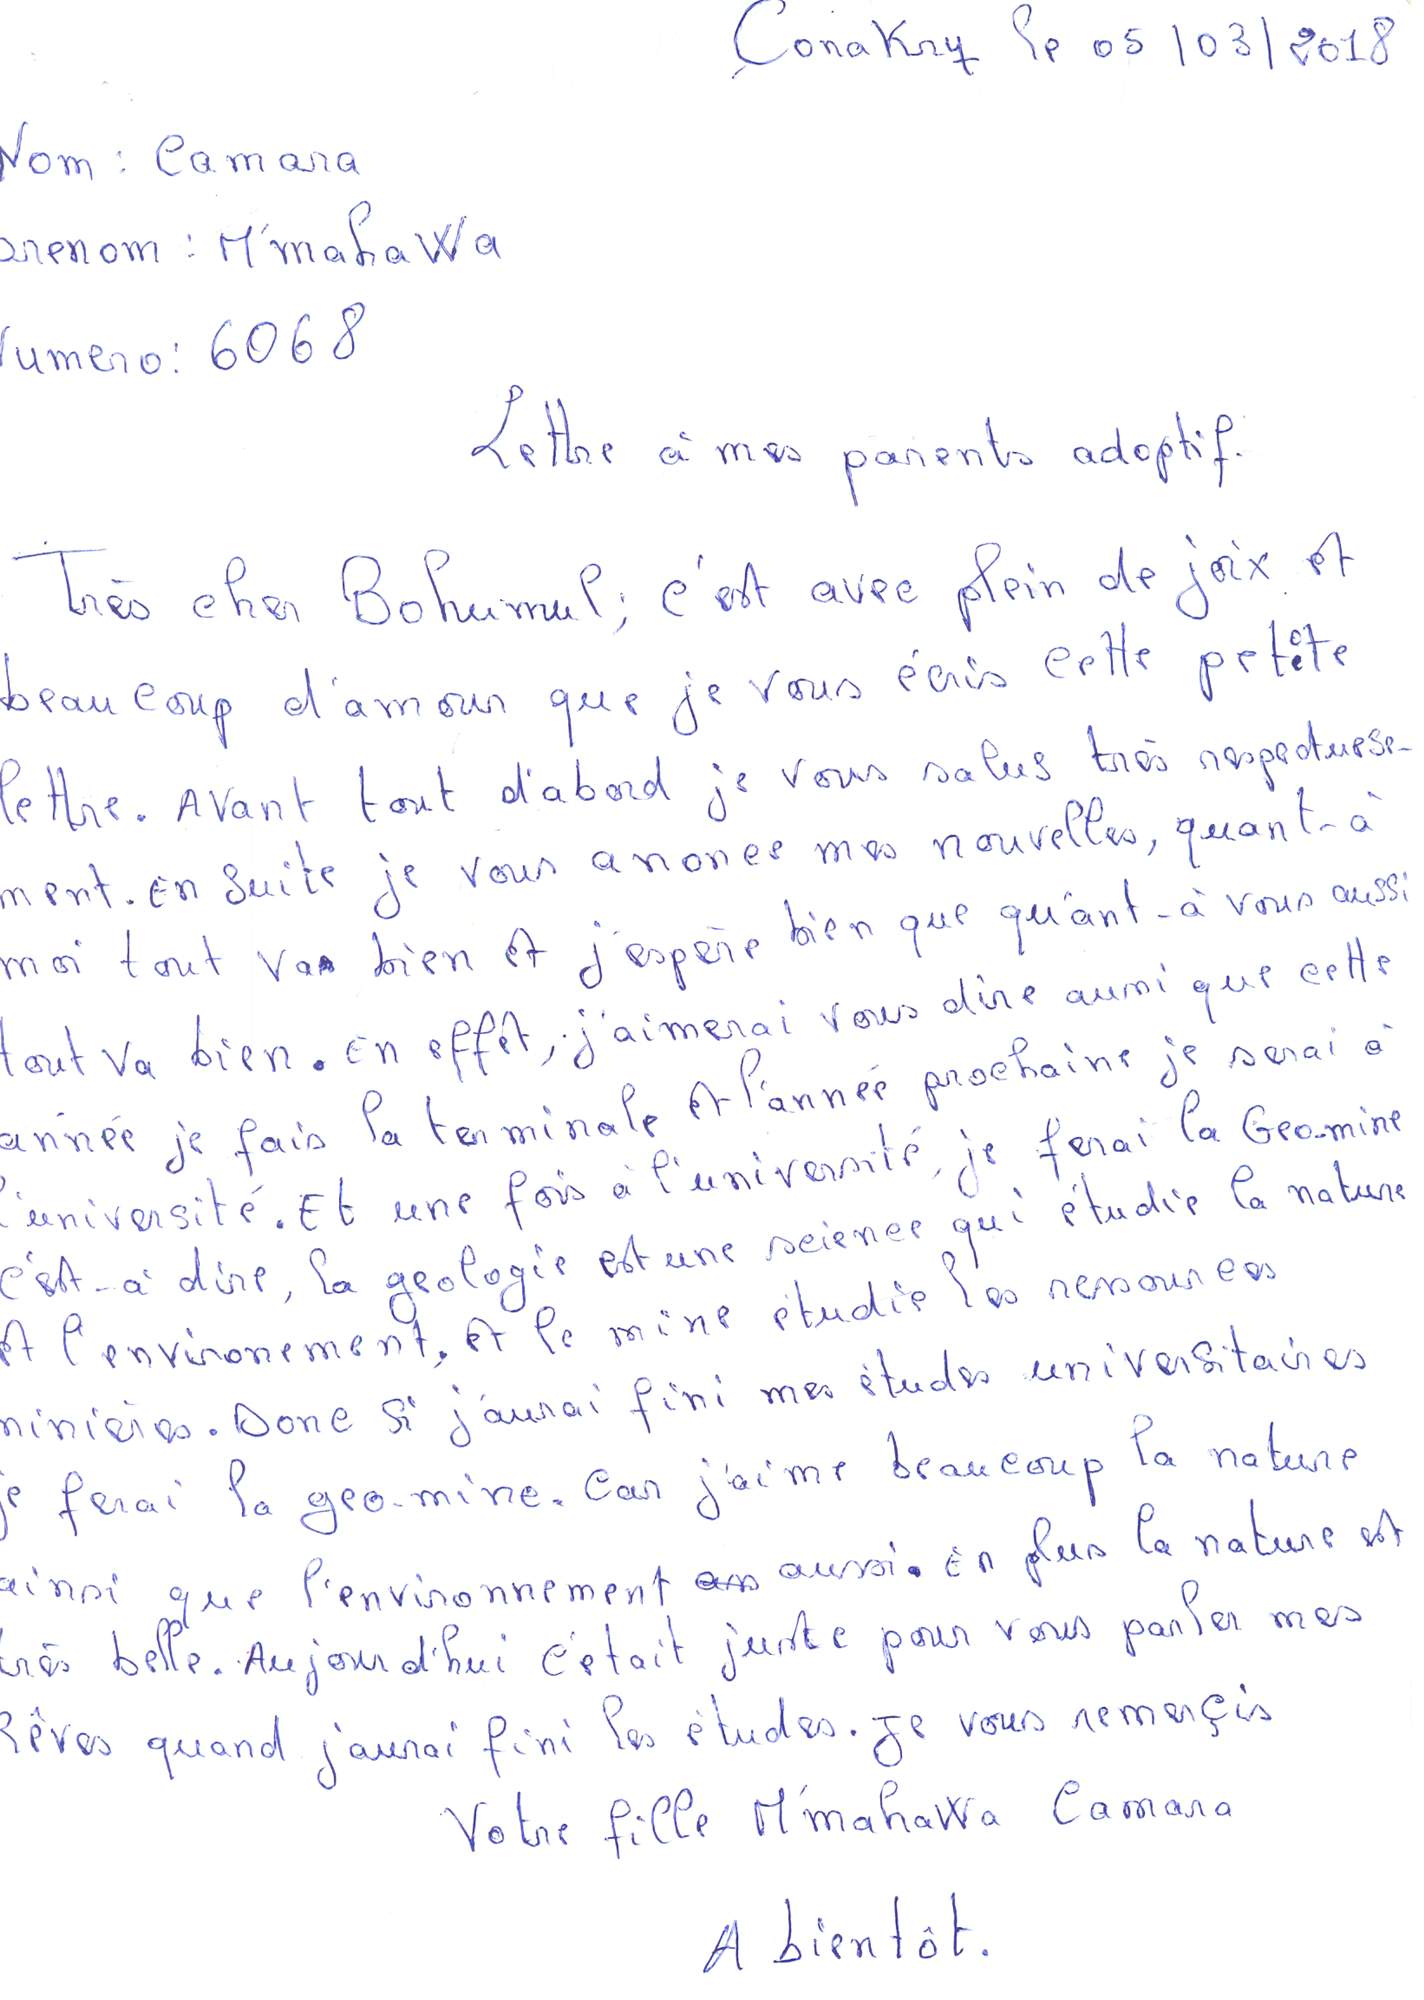 Conakry le 05/03/2018
Nom : Camara
prenom : M'mahaWa
Numero: 6068
Lettre à mes parents adoptif.
Très cher Bohumul, c'est avec plein de joix et
beaucoup d'amour que je vous écris cette petite
lettre. Avant tout d'abord je vous salus très respectuese-
ment. En suite je vous anonce mes nouvelles, quant-à
moi tout va bien et j'espère bien que qu'ant-à vous aussi
tout va bien. En effet, j'aimerai vous dire aussi que cette
année je fais la terminale et l'année prochaine je serai à
l'université. Et une fois à l'université, je ferai la Geo-mine
c'est-à dire, la geologie est une science qui étudie la nature
et l'environement, et le mine étudie les ressources
minières. Donc si j'aurai fini mes études universitaires
je ferai la geo-mine. Car j'aime beaucoup la nature
ainsi que l'environnement aussi. En plus la nature est
très belle. Aujourd'hui c'était juste pour vous parler mes
Rêves quand j'aurai fini les études. Je vous remerçis
Votre fille M'mahaWa Camara
A bientôt.